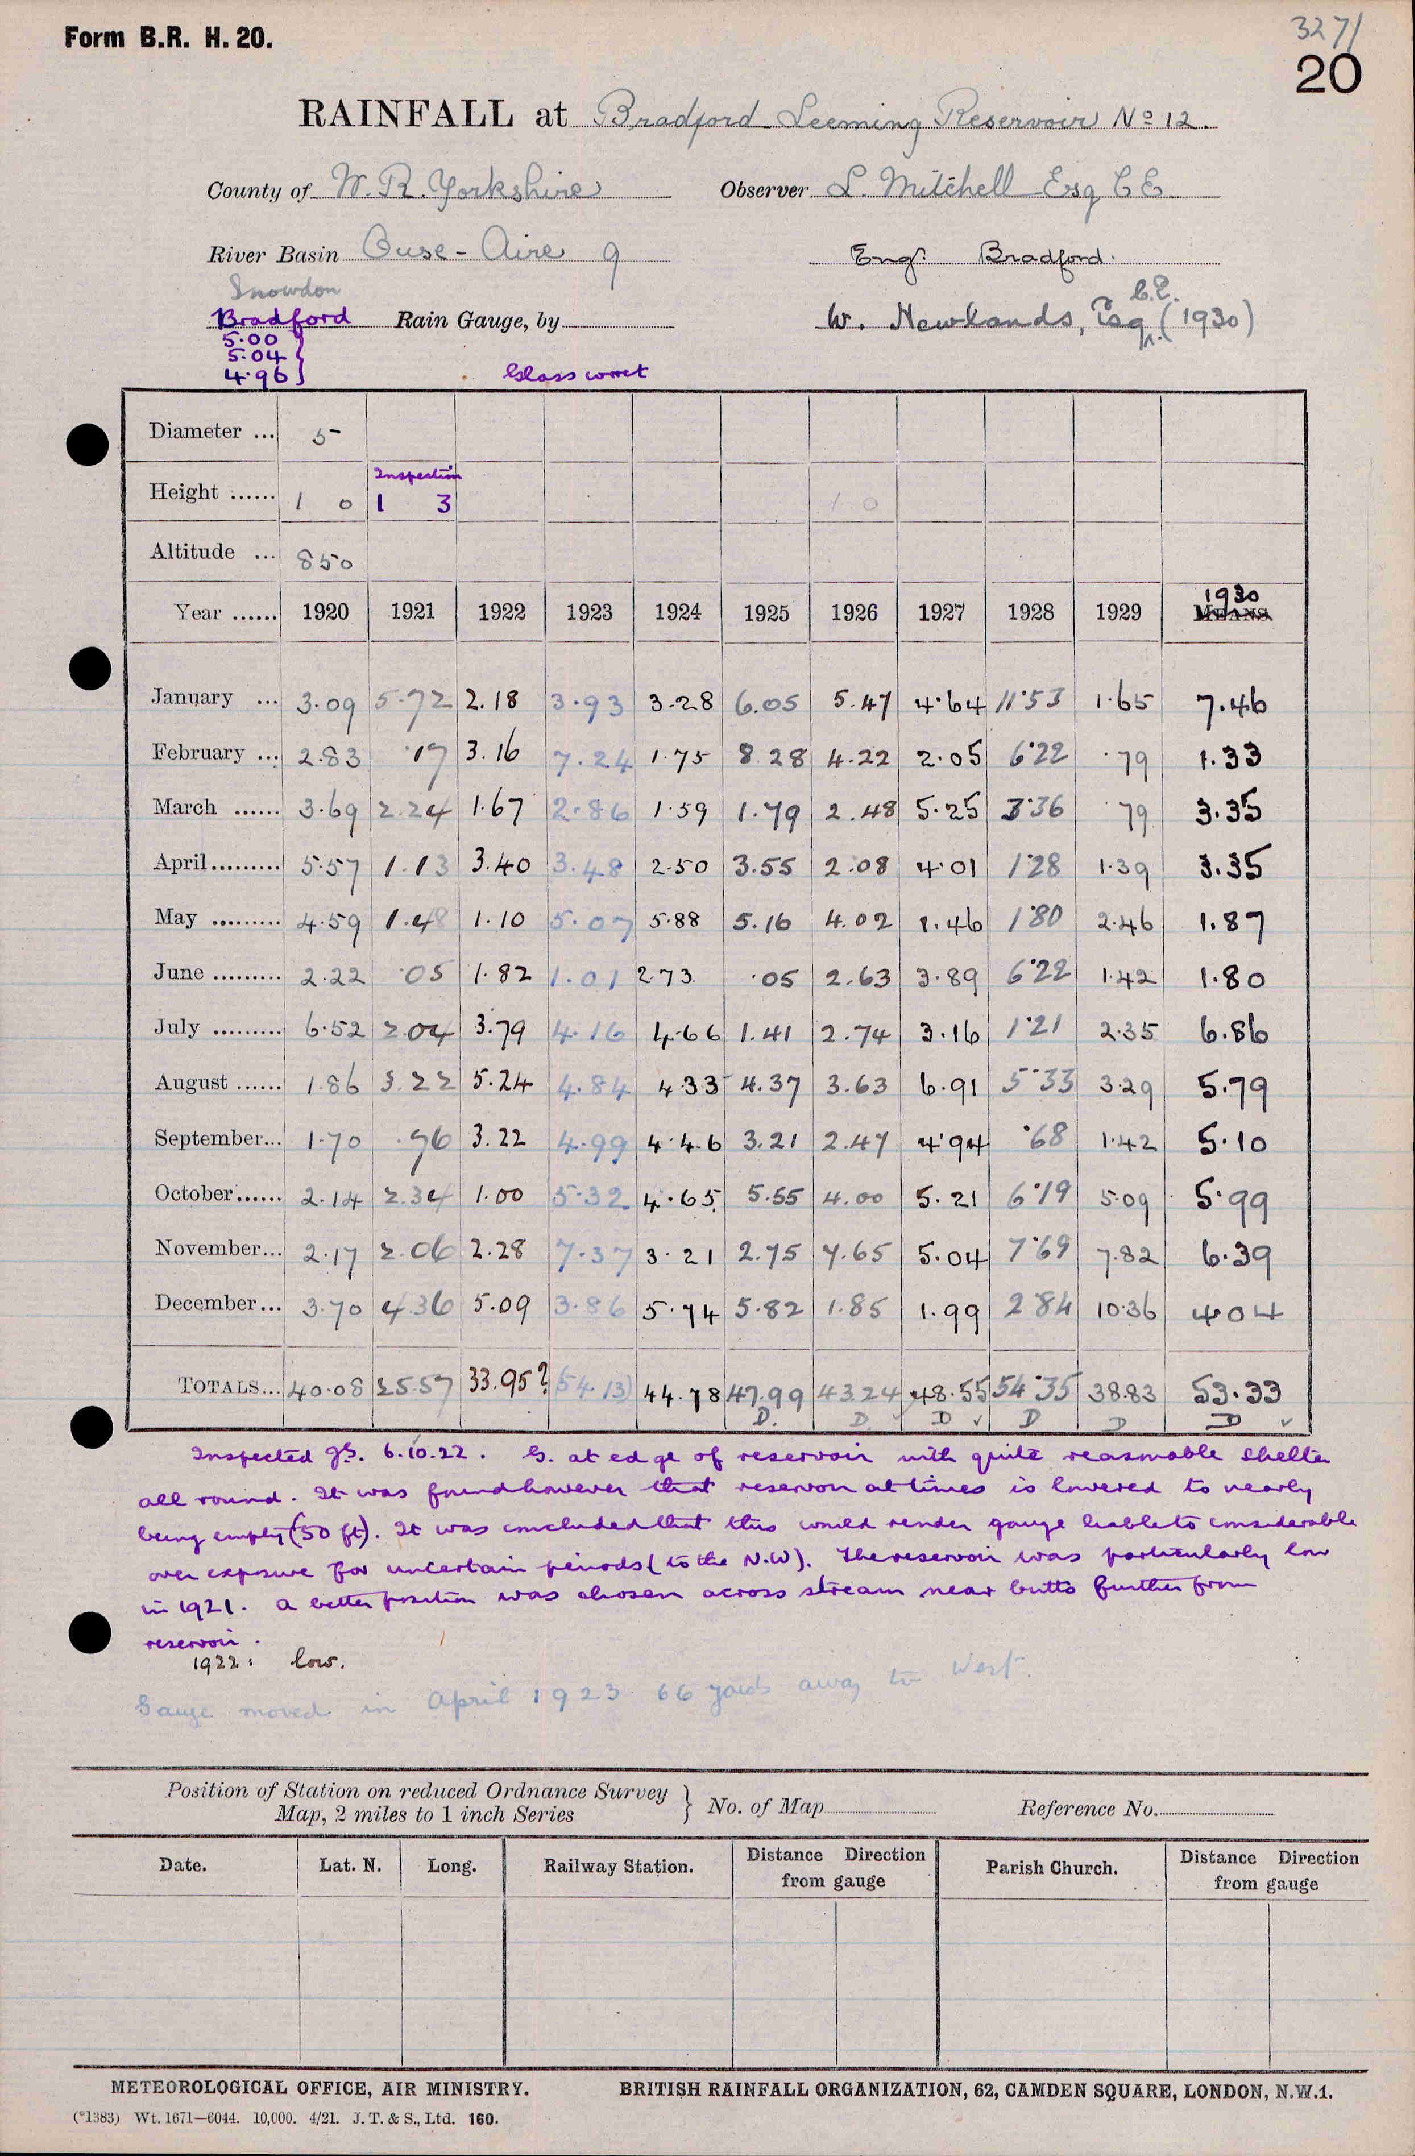 Form B.R. H. 20.
327/
20
RAINFALL at Bradford Leeming Reservoir No 12.
County of W. R. Yorkshire Observer L. Mitchell Esq C E
River Basin Ouse - Aire 9 Engr. Bradford.
Snowdon
Bradford Rain Gauge, by W. Newlands, Esq. C.E. (1930)
5.00
5.04
4.96
Glass correct
Diameter ... 5
Inspection
Height ...... 1 0 1 3 1 0
Altitude ... 850
1930
Year ...... 1920 1921 1922 1923 1924 1925 1926 1927 1928 1929 MEANS.
January ... 3.09 5.72 2.18 3.93 3.28 6.05 5.47 4.64 11.53 1.65 7.46
February ... 2.83 .17 3.16 7.24 1.75 8.28 4.22 2.05 6.22 .79 1.33
March ...... 3.69 2.24 1.67 2.86 1.59 1.79 2.48 5.25 3.36 .79 3.35
April......... 5.57 1.13 3.40 3.48 2.50 3.55 2.08 4.01 1.28 1.39 3.35
May ......... 4.59 1.48 1.10 5.07 5.88 5.16 4.02 1.46 1.80 2.46 1.87
June ......... 2.22 .05 1.82 1.01 2.73 .05 2.63 3.89 6.22 1.42 1.80
July ......... 6.52 2.04 3.79 4.16 4.66 1.41 2.74 3.16 1.21 2.35 6.86
August ...... 1.86 3.22 5.24 4.84 4.33 4.37 3.63 6.91 5.33 3.29 5.79
September... 1.70 .96 3.22 4.99 4.46 3.21 2.47 4.94 .68 1.42 5.10
October...... 2.14 2.34 1.00 5.32 4.65 5.55 4.00 5.21 6.19 5.09 5.99
November... 2.17 2.06 2.28 7.37 3.21 2.75 7.65 5.04 7.69 7.82 6.39
December... 3.70 4.36 5.09 3.86 5.74 5.82 1.85 1.99 2.84 10.36 4.04
TOTALS... 40.08 25.57 33.95? (54.13) 44.78 47.99 43.24 48.55 54.35 38.83 53.33
D. D ✓ D ✓ D D D ✓
Inspected 6.10.22. G. at edge of reservoir with quite reasonable shelter
all round. It was found however that reservoir at times is lowered to nearly
being empty (50 ft). It was concluded that this would render gauge liable to considerable
over exposure for uncertain periods (to the N.W). The reservoir was particularly low
in 1921. A better position was chosen across stream near butts further from
reservoir.
1922: low.
Gauge moved in April 1923 66 yards away to West.
Position of Station on reduced Ordnance Survey
Map, 2 miles to 1 inch Series } No. of Map Reference No.
Date. Lat. N. Long. Railway Station. Distance Direction from gauge Parish Church. Distance Direction from gauge
METEOROLOGICAL OFFICE, AIR MINISTRY. BRITISH RAINFALL ORGANIZATION, 62, CAMDEN SQUARE, LONDON, N.W.1.
(*1383) Wt. 1671—6044. 10,000. 4/21. J. T. & S., Ltd. 160.